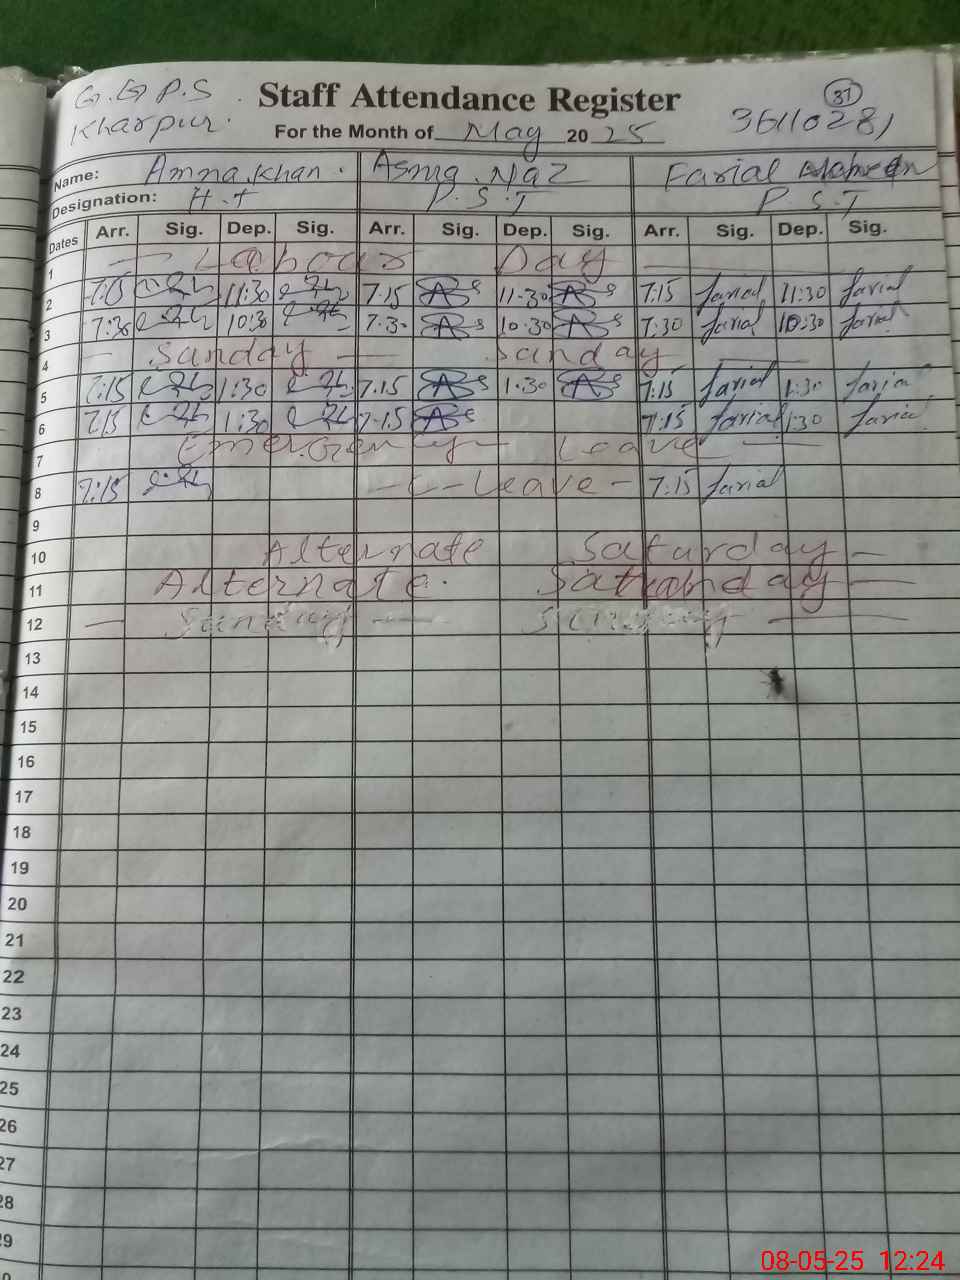 G.G P.S
Kharpur.
Staff Attendance Register
37
For the Month of May 2025
36110281
Name: Amna Khan. Asma Naz Farial
Designation: H.t P.S.T P.S.T
Dates Arr. Sig. Dep. Sig. Arr. Sig. Dep. Sig. Arr. Sig. Dep. Sig.
1 — Labour Day —
2 7:15 11:30 7.15 11.30 7:15 farial 11:30 farial
3 7:30 10:30 7.30 10.30 7:30 farial 10:30 farial
4 — Sunday — Sunday —
5 7:15 1:30 7.15 1.30 7:15 farial 1:30 farial
6 7:15 1:30 7.15 7:15 farial 1:30 farial
7 Emergency Leave —
8 7:15 — C-Leave - 7:15 farial
9
10 Alternate Saturday —
11 Alternate. —
12 — Sunday — Sunday —
13
14
15
16
17
18
19
20
21
22
23
24
25
26
27
28
29
08-05-25 12:24